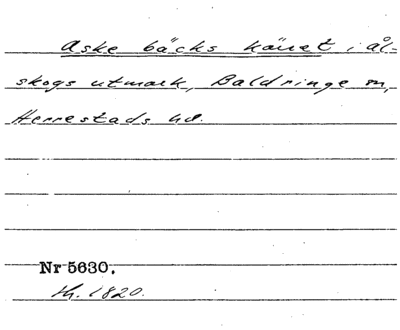 Aske bäcks käret i ål-
skogs utmark, Baldringe sn,
Herrestads hd.
Nr 5630.
th. 1820.